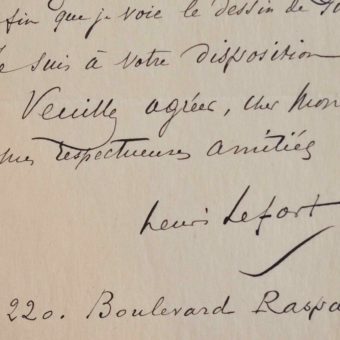 fin que je voie le dessin de
Je suis à votre disposition
Veuillez agréer, cher Mon
mes respectueuses amitiés
Henri Lefort
220. Boulevard Raspa